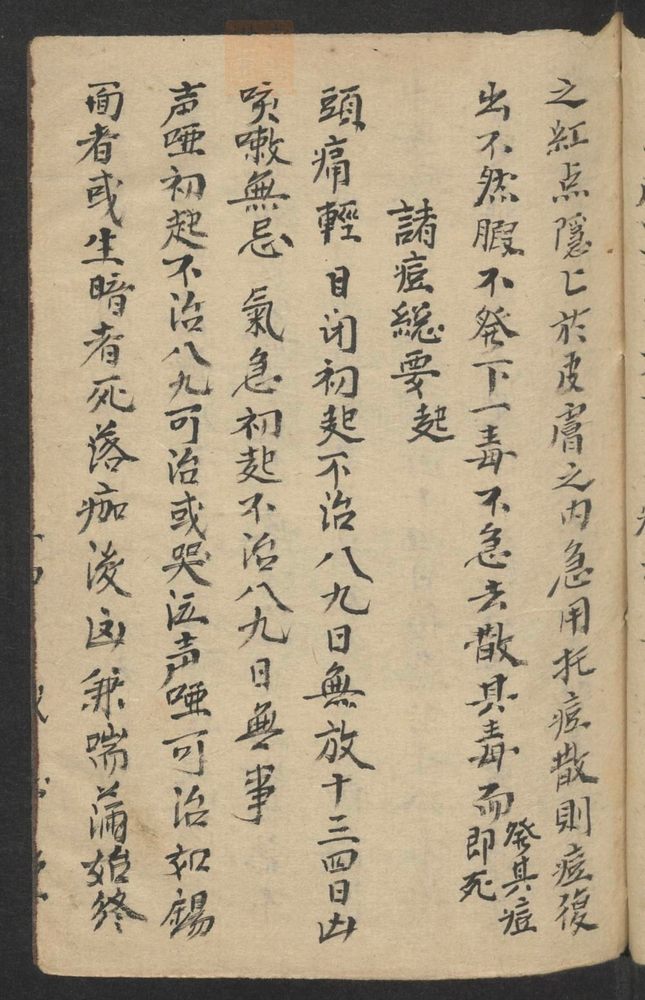 之紅点隱匕於皮膚之内急用托痘散則痘復
出不然腹不發下一毒不急去散其毒而發其痘即死
諸痘總要起
頭痛輕 目闭初起不治八九日無放十三四日凶
咳嗽無忌 氣急初起不治八九日無事
声啞初起不治八九可治或哭泣声啞可治如錫
面者或生暗者死落痂後凶兼喘滿始終